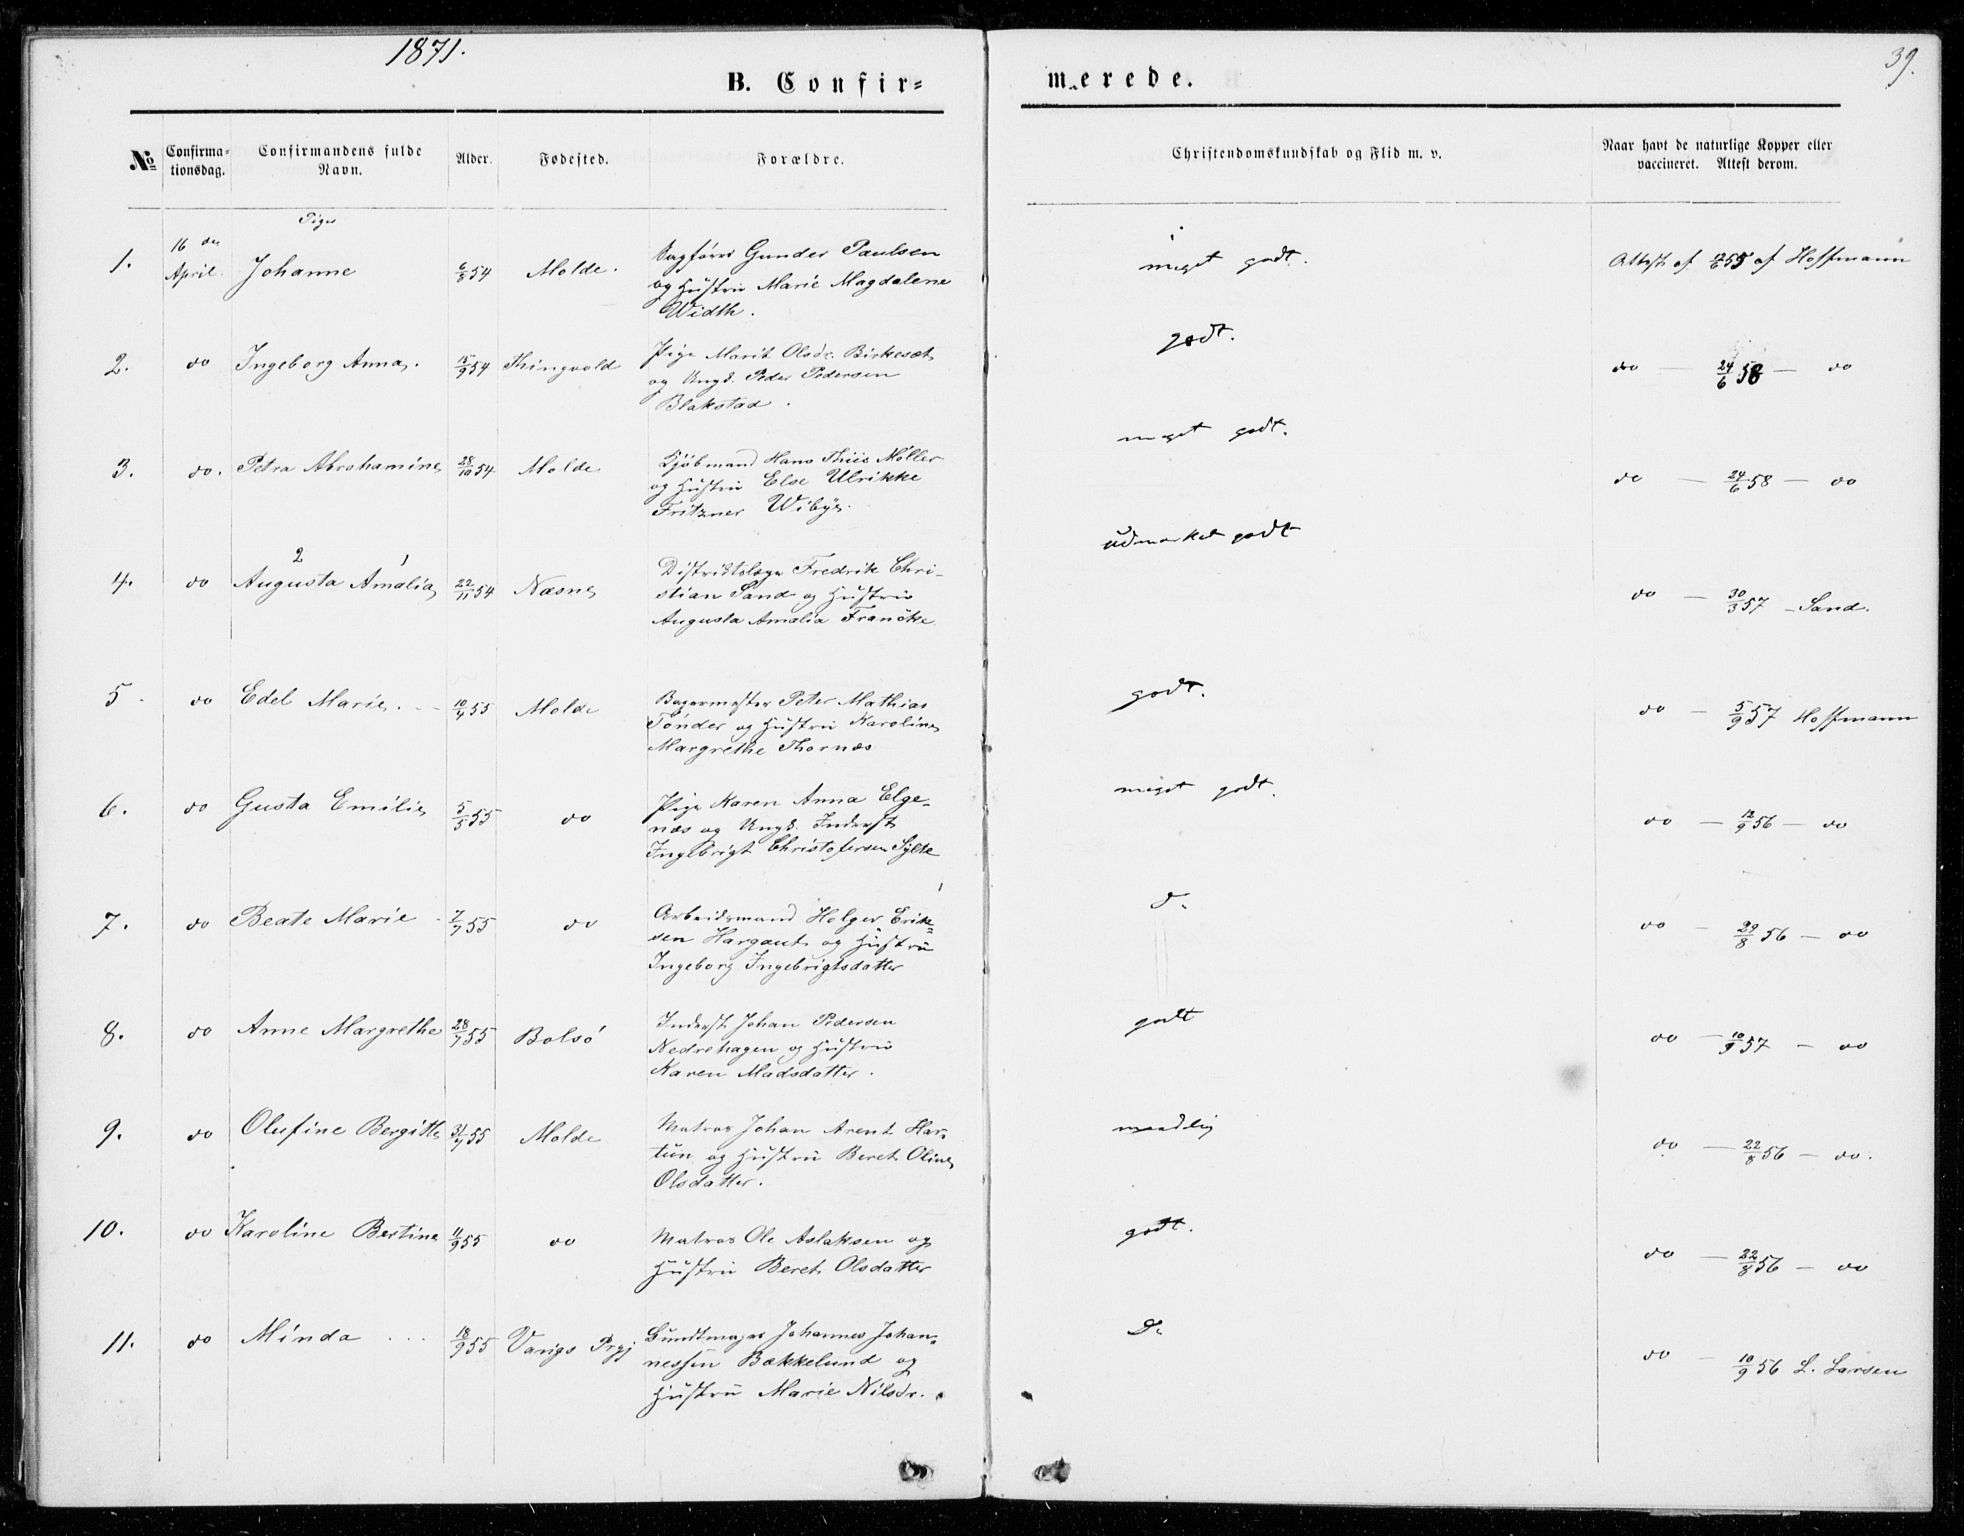 1871.
39.
B. Confir=
merede.
No
Confirma-
tionsdag.
Confirmandens fulde
Navn.
Alder.
Fødested.
Forældre.
Christendomskundskab og Flid m. v.
Naar havt de naturlige Kopper eller
vaccineret. Attest derom.
Piger
1. 16 de April. Johanne 6/8 54 Molde. Sagfører Gunder Paulsen
og Hustru Marie Magdalene
Width.
meget godt.
Attest af 55 af Hoffmann
2. do Ingeborg Anna. 15/9 54 Thingvold Pige Marit Olsdr. Birkeset
og Ungk. Peder Pedersen
Blakstad.
godt.
do — 24/6 58 — do
3. do. Petra Abrahamine 28/10 54 Molde Kjøbmand Hans Thiis Møller
og Hustru Else Ulrikke
Fritzner Wibye.
meget godt.
do — 24/6 58 — do
2 1
4. do Augusta Amalia 22/11 54 Næsne Distriktslæge Fredrik Chri-
stian Sand og Hustru
Augusta Amalia Franöke
udmærket godt
do — 30/3 57 — Sand.
5. do Edel Marie. 10/4 55 Molde Bagermester Peter Mathias
Tønder og Hustru Karoline
Margrethe Thornæs
godt.
do — 5/9 57 Hoffmann
6. do Gusta Emilie 5/5 55 do Pige Karen Anna Elge-
næs og Ungk. Inderst
Ingebrigt Christofersen Sylte
meget godt.
do — 12/9 56 — do
7. do Beate Marie 7/7 55 do Arbeidsmand Holger Erik=
sen Hargaut og Hustru
Ingeborg Ingebrigtsdatter
do — 29/8 56 — do
8. do Anne Margrethe 28/7 55 Bolsö Inderst Johan Pedersen
Nedrehagen og Hustru
Karen Madsdatter.
godt
do — 10/9 57 — do
9. do Olufine Bergitte 31/7 55 Molde Matros Johan Arent Har-
tun og Hustru Beret Oline
Olsdatter.
maadelig
do — 22/8 56 — do.
10. do Karoline Bertine 11/9 55 do Matros Ole Aslaksen og
Hustru Beret Olsdatter
godt.
do — 22/8 56 — do
11. do Minda 18/9 55 Vangs Prgj Bundtmager Johannes Johan=
nessen Bækkelund og
Hustru Marie Nilsdr.
Do
do — 10/9 56 L. Larsen